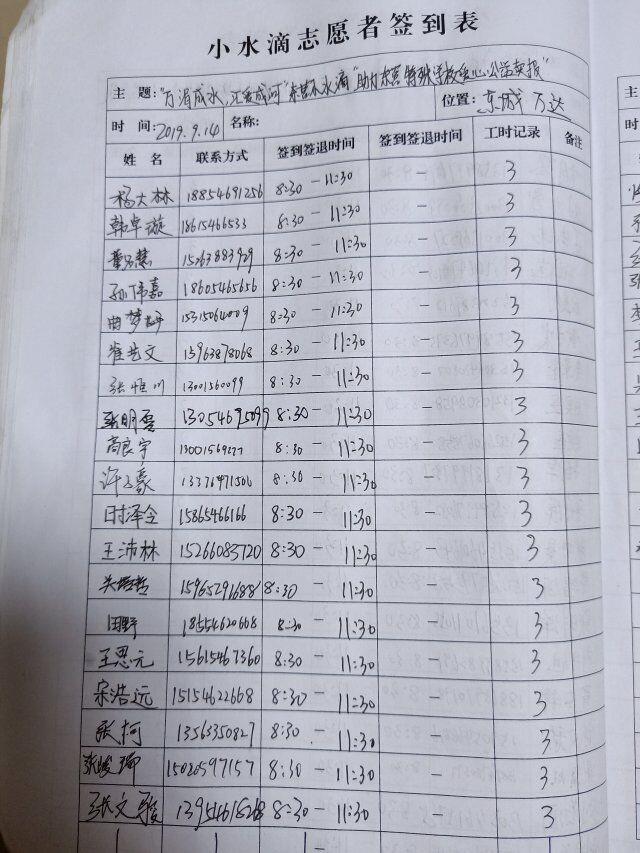 小水滴志愿者签到表
主 题: "万涓成水,汇爱成河" 东营小水滴 "助力东营特殊学校爱心公益卖报"
时 间: 2019.9.14 名称: 位置: 东城万达
姓 名 联系方式 签到签退时间 签到签退时间 工时记录 备注
杨大林 18854691256 8:30-11:30 - 3
韩卓璇 18615466533 8:30-11:30 - 3
15263883929 8:30-11:30 - 3
孙伟嘉 18605465656 8:30-11:30 - 3
曲梦 15315064009 8:30-11:30 - 3
崔艺文 15963878068 8:30-11:30 - 3
张恒川 13001560099 8:30-11:30 - 3
张明 13054695099 8:30-11:30 - 3
高良宇 13001569277 8:30-11:30 - 3
许子豪 13376471506 8:30-11:30 - 3
时泽全 15865466166 8:30-11:30 - 3
王沛林 15266083720 8:30-11:30 - 3
15965291688 8:30-11:30 - 3
田野 18554620668 8:30-11:30 - 3
王思元 15615467360 8:30-11:30 - 3
宋浩远 15154622668 8:30-11:30 - 3
张珂 1356350827 8:30-11:30 - 3
张峻瑞 15020597157 8:30-11:30 - 3
张文骏 13954615268 8:30-11:30 - 3